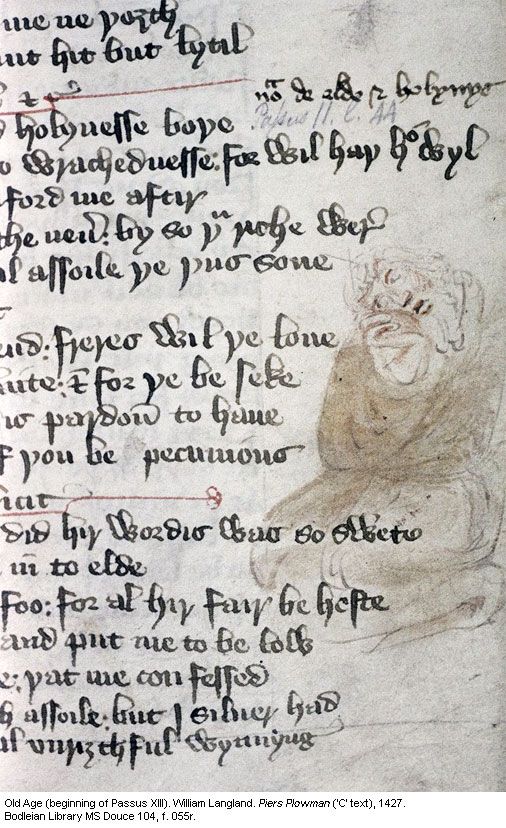 me ne yozth
ut hit but lytil
nōa de elde & holynys
Passus 11. C. AA
holynesse boye
o wrachednesse: for wil hay hō wyl
ford me aftir
the : by so yu riche wer
l assoile ye yus sone
end: freres wil ye loue
& for ye be seke
is pardoū to haue
f you be pecunious
did hir wordis was so swete
in to elde
foo: for al hir fair be hefte
and put me to be low
yat me con fessed
h assoile: but I siluer had
al vnriȝthful wynnyng
Old Age (beginning of Passus XIII). William Langland. Piers Plowman ('C' text), 1427.
Bodleian Library MS Douce 104, f. 055r.